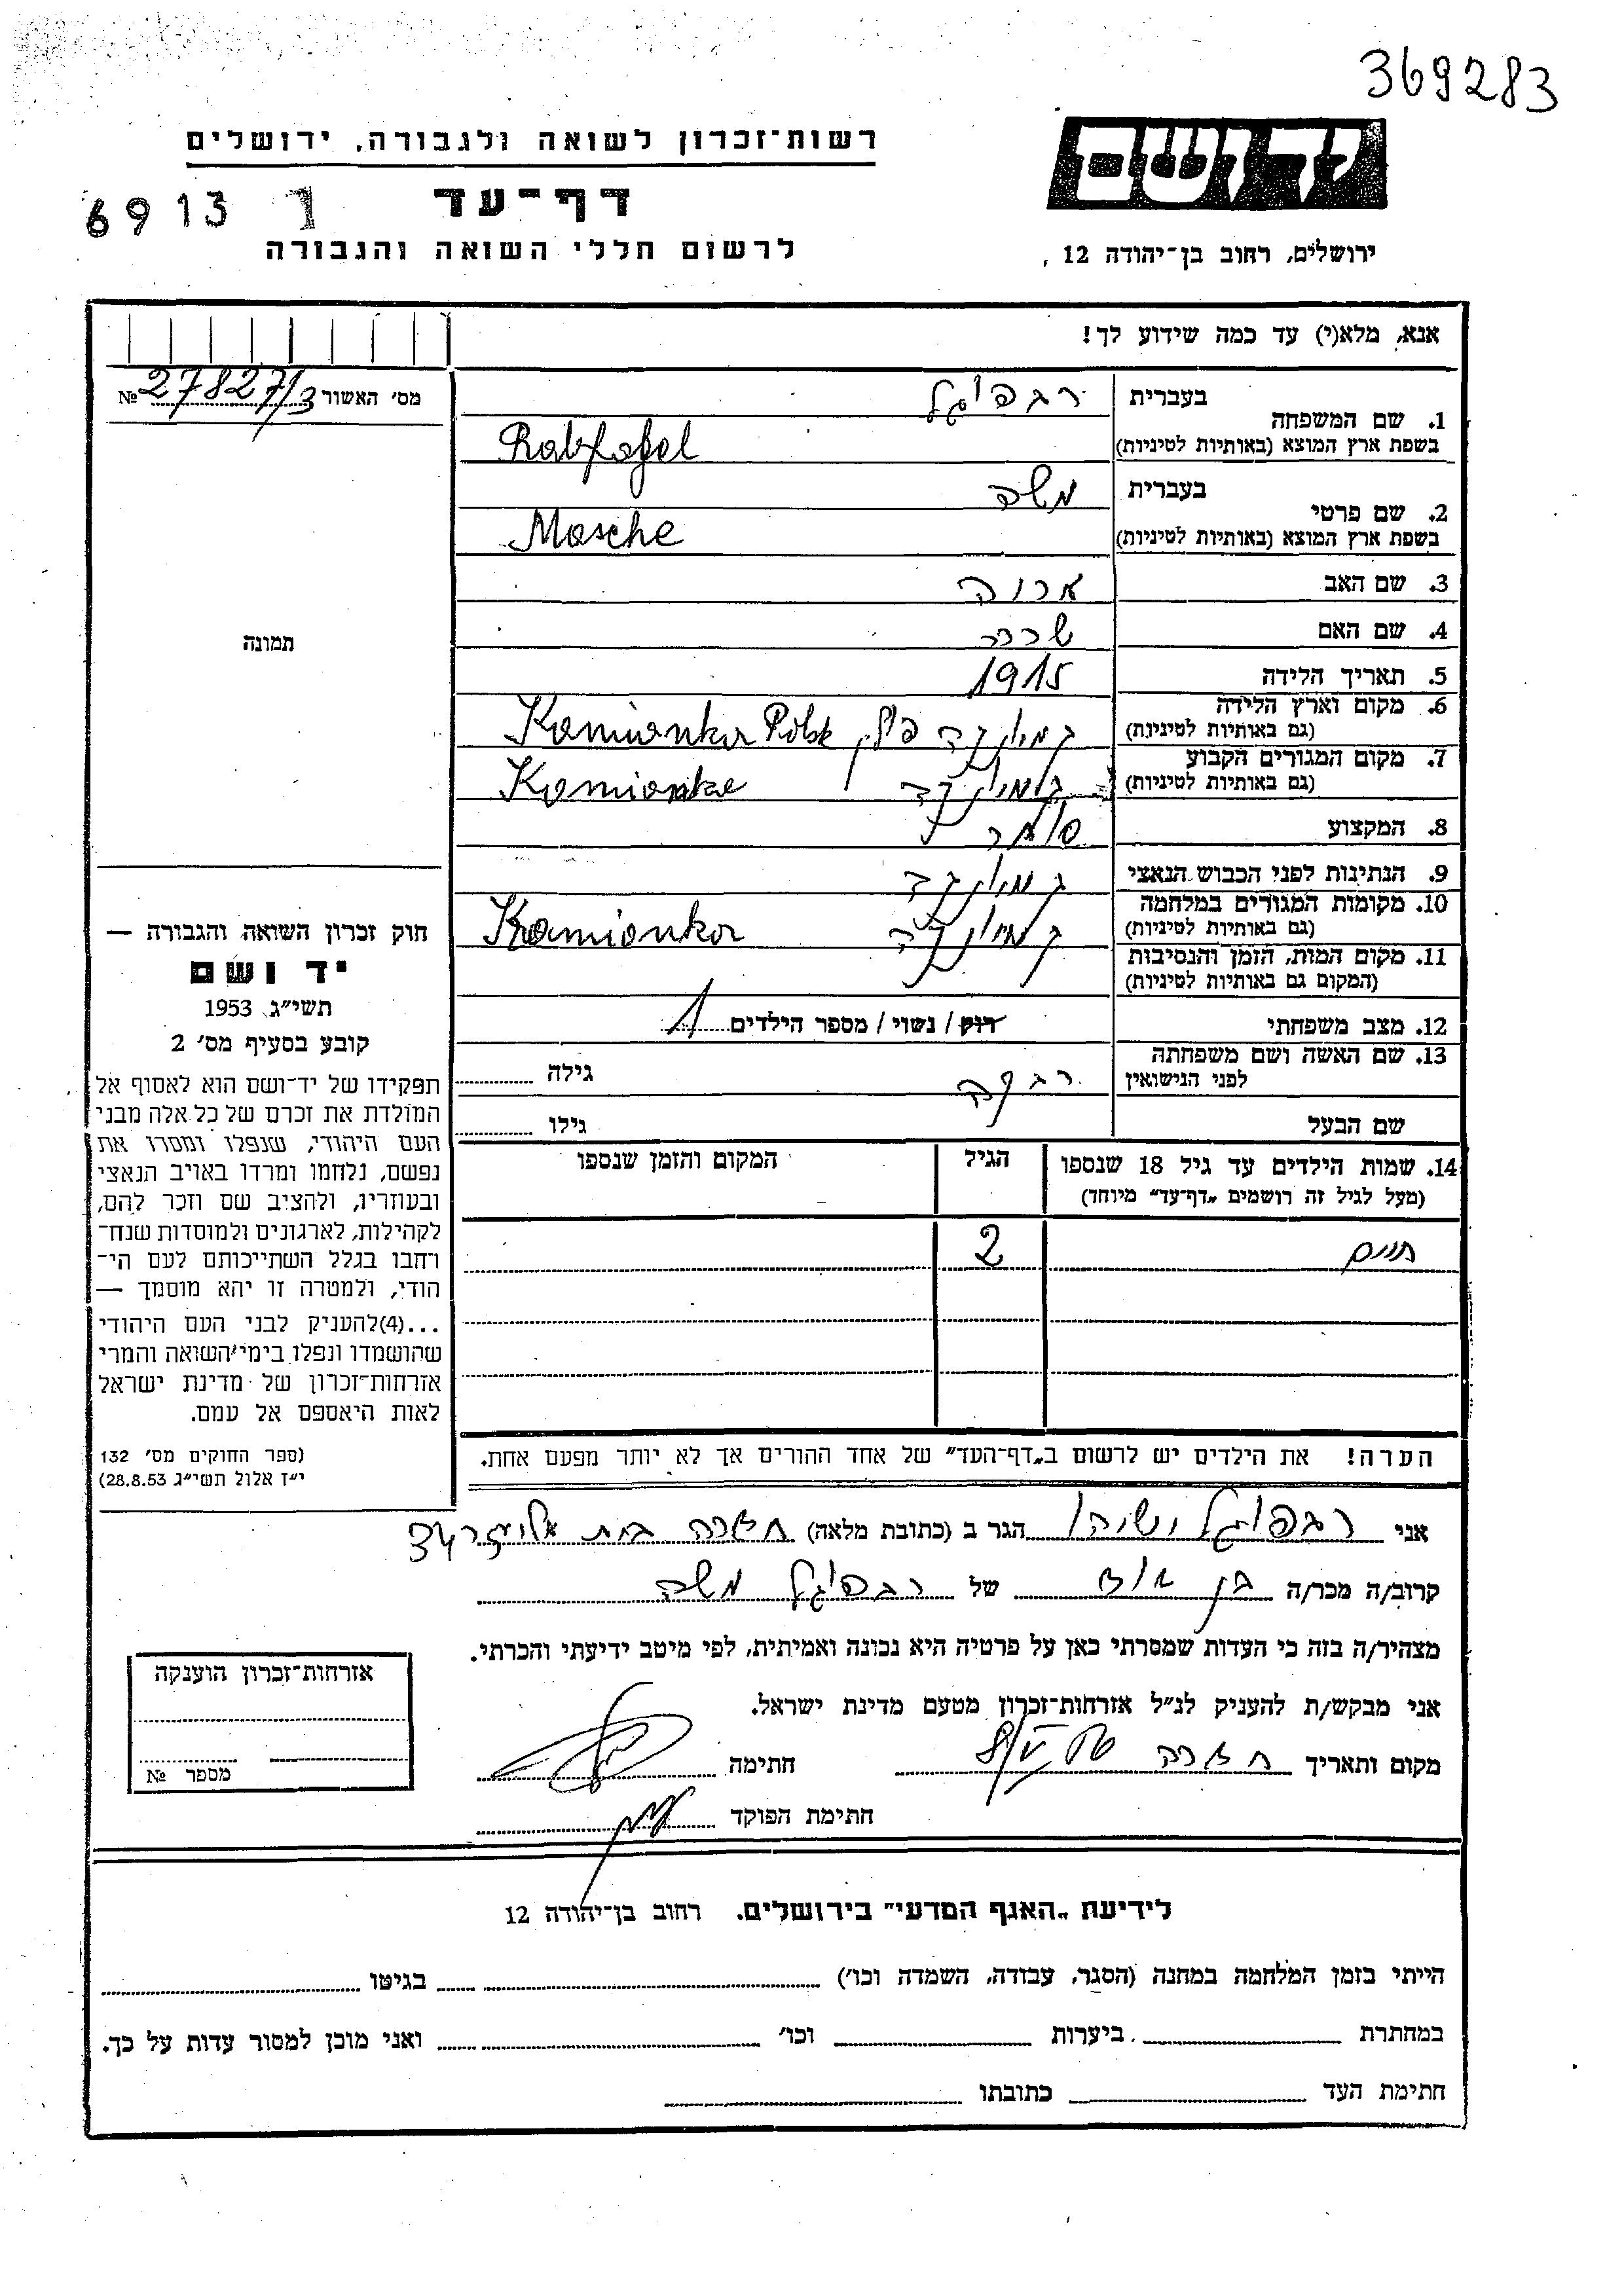 369283
רשות־זכרון לשואה ולגבורה, ירושלים
יד ושם
דף־עד
6913
לרשום חללי השואה והגבורה
ירושלים, רחוב בן־יהודה 12
אנא, מלא(י) עד כמה שידוע לך!
מס׳ האשור № 27827/3
תמונה
בעברית רבפוגל
1. שם המשפחה
בשפת ארץ המוצא (באותיות לטיניות) Rabfogel
בעברית משה
2. שם פרטי
בשפת ארץ המוצא (באותיות לטיניות) Mosche
3. שם האב
4. שם האם
5. תאריך הלידה 1915
6. מקום וארץ הלידה
(גם באותיות לטיניות) קמיונקה פולין Kamionka Polsk
7. מקום המגורים הקבוע
(גם באותיות לטיניות) קמיונקה Kamionke
8. המקצוע סוחר
9. הנתינות לפני הכבוש הנאצי קמיונקה
10. מקומות המגורים במלחמה
(גם באותיות לטיניות) קמיונקה Kamionka
11. מקום המות, הזמן והנסיבות
(המקום גם באותיות לטיניות)
12. מצב משפחתי רוק / נשוי / מספר הילדים 1
13. שם האשה ושם משפחתה
לפני הנישואין רבקה גילה
שם הבעל גילו
14. שמות הילדים עד גיל 18 שנספו הגיל המקום והזמן שנספו
(מעל לגיל זה רושמים „דף־עד״ מיוחד)
חיים 2
הערה! את הילדים יש לרשום ב„דף־העד״ של אחד ההורים אך לא יותר מפעם אחת.
חוק זכרון השואה והגבורה —
יד ושם
תשי״ג 1953
קובע בסעיף מס׳ 2
תפקידו של יד־ושם הוא לאסוף אל
המולדת את זכרם של כל אלה מבני
העם היהודי, שנפלו ומסרו את
נפשם, נלחמו ומרדו באויב הנאצי
ובעוזריו, ולהציב שם וזכר להם,
לקהילות, לארגונים ולמוסדות שנח־
רחבו בגלל השתייכותם לעם הי־
הודי, ולמטרה זו יהא מוסמך —
...(4)להעניק לבני העם היהודי
שהושמדו ונפלו בימי השואה והמרי
אזרחות־זכרון של מדינת ישראל
לאות היאספם אל עמם.
(ספר החוקים מס׳ 132
י״ז אלול תשי״ג 28.8.53)
אני רבפוגל ישיהו הגר ב (כתובת מלאה) חדרה בית אליעזר 34
קרוב/ה מכר/ה בן אח של רבפוגל משה
מצהיר/ה בזה כי העדות שמסרתי כאן על פרטיה היא נכונה ואמיתית, לפי מיטב ידיעתי והכרתי.
אני מבקש/ת להעניק לנ״ל אזרחות־זכרון מטעם מדינת ישראל.
מקום ותאריך חדרה חתימה
חתימת הפוקד
אזרחות־זכרון הוענקה
מספר №
לידיעת „האגף המדעי״ בירושלים. רחוב בן־יהודה 12
הייתי בזמן המלחמה במחנה (הסגר, עבודה, השמדה וכו׳) בגיטו
במחתרת ביערות וכו׳ ואני מוכן למסור עדות על כך.
חתימת העד כתובתו